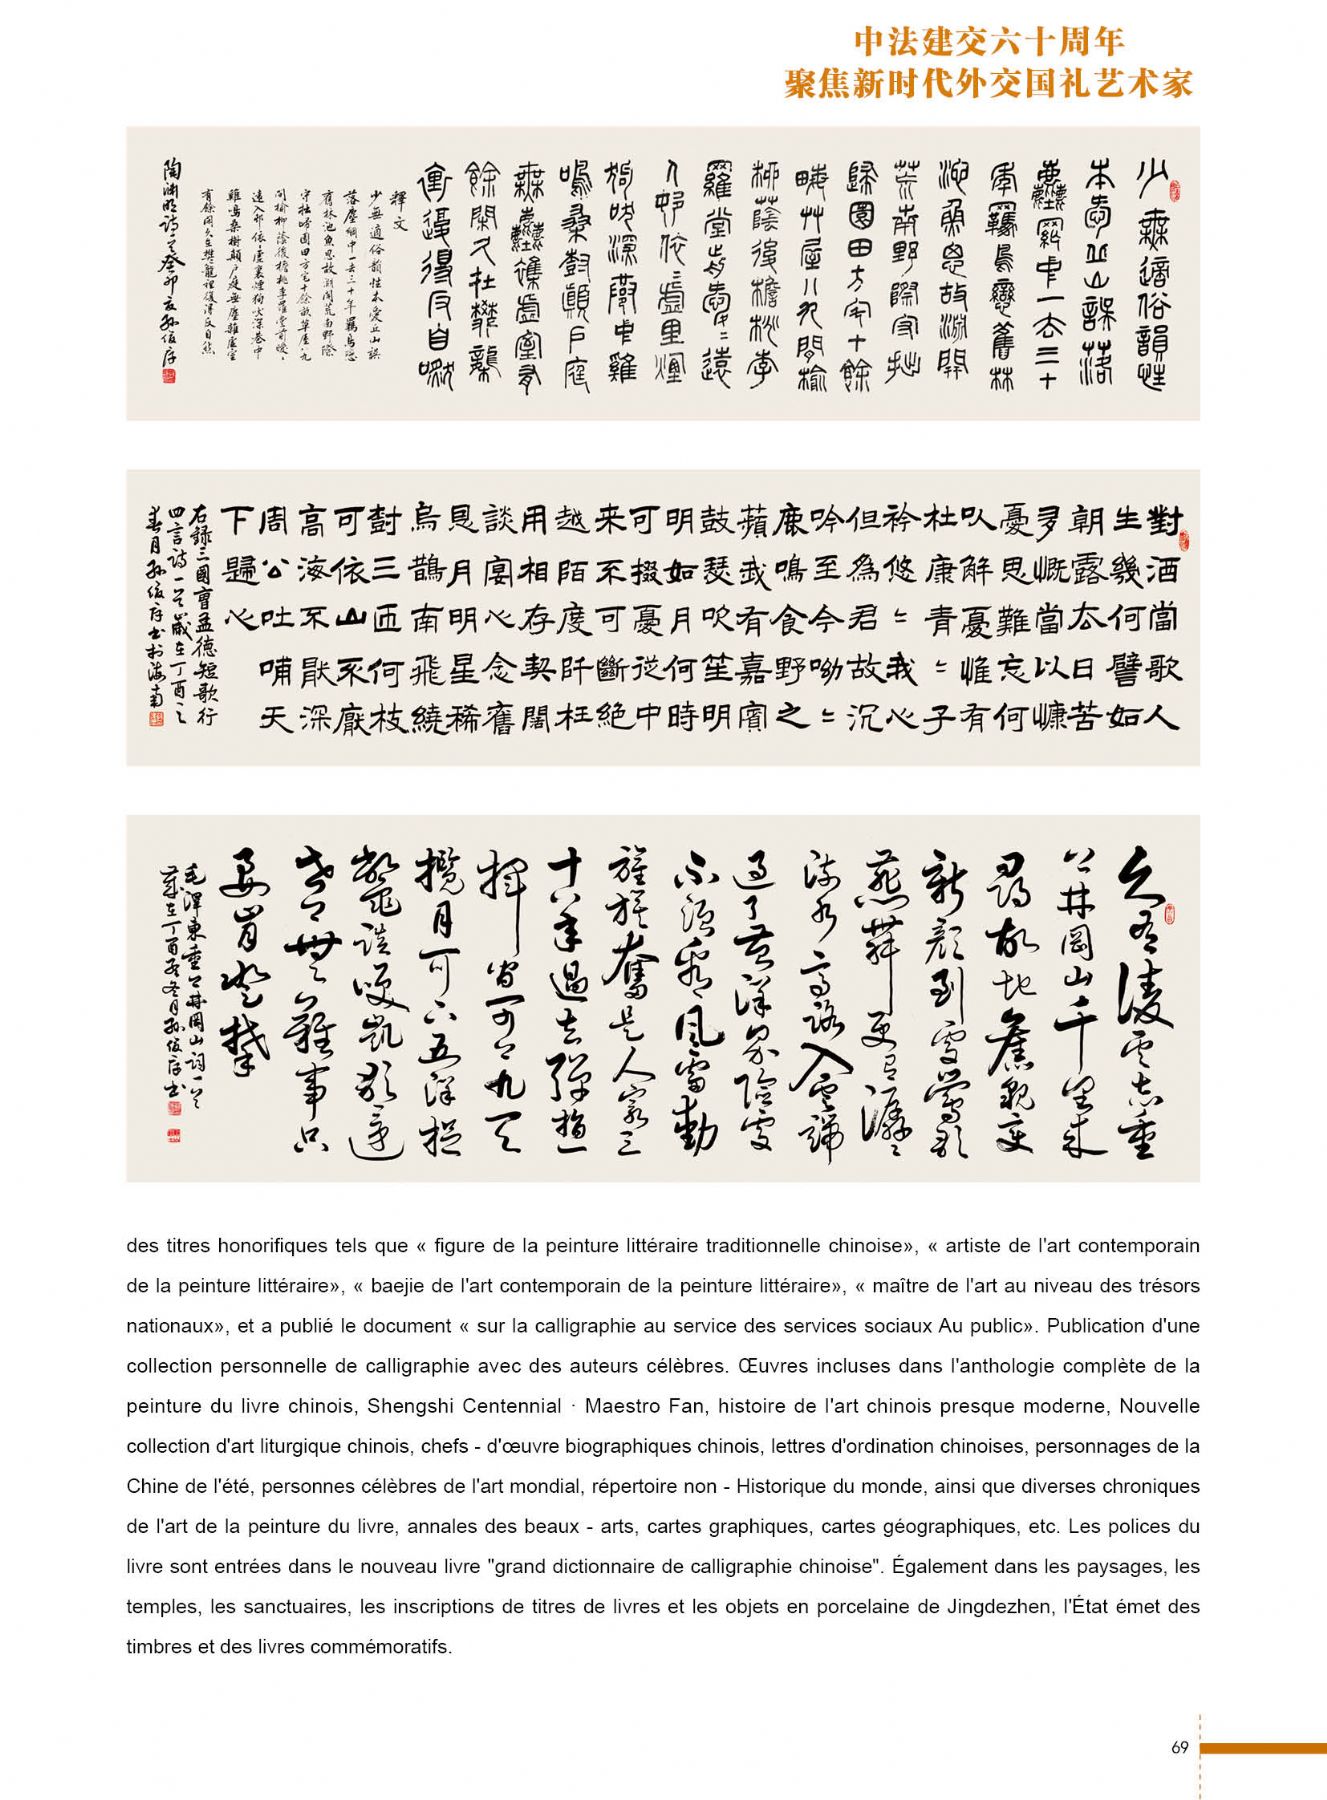 中法建交六十周年
聚焦新时代外交国礼艺术家
少無適俗韻性
本愛丘山誤落
塵網中一去三十
年羈鳥戀舊林
池魚思故淵開
荒南野際守拙
歸園田方宅十餘
畮艸屋八九間榆
柳蔭後檐桃李
羅堂前愛〻遠
人邨依〻虛里煙
狗吠深巷中雞
鳴桑樹顛戶庭
無塵雜虛室有
餘閑久在樊籠
復得反自嘫
釋文
少無適俗韻性本愛丘山誤
落塵網中一去三十年羈鳥戀
舊林池魚思故淵開荒南野際
守拙歸園田方宅十餘畝草屋八九
間榆柳蔭後檐桃李羅堂前曖〻
遠人邨依〻虛裏煙狗吠深巷中
雞鳴桑樹顛戶庭無塵雜虛室
有餘閑久在樊籠裡復得反自然
陶淵明詩一首癸卯夏孫俊序
對酒當歌人
生幾何譬如
朝露去日苦
多慨當以慷
憂思難忘何
以解憂惟有
杜康青〻子
衿悠〻我心
但為君故沉
吟至今呦〻
鹿鳴食野之
蘋我有嘉賓
鼓瑟吹笙明
明如月何時
可掇憂從中
來不可斷絕
越陌度阡枉
用相存契闊
談宴心念舊
恩月明星稀
烏鵲南飛繞
樹三匝何枝
可依山不厭
高海不厭深
周公吐哺天
下歸心
右錄三國曹孟德短歌行
四言詩一首歲在丁酉之
春月孫俊序書於海南
久有凌雲志重
上井岡山千里來
尋故地舊貌變
新顏到處鶯歌
燕舞更有潺〻
流水高路入雲端
過了黃洋界險處
不須看風雷動
旌旗奮是人寰三
十八年過去彈指一
揮間可上九天
攬月可下五洋捉
鱉談笑凱歌還
世上無難事只
要肯登攀
毛澤東重上井岡山詞一首
歲在丁酉冬月孫俊序書
des titres honorifiques tels que « figure de la peinture littéraire traditionnelle chinoise», « artiste de l'art contemporain
de la peinture littéraire», « baejie de l'art contemporain de la peinture littéraire», « maître de l'art au niveau des trésors
nationaux», et a publié le document « sur la calligraphie au service des services sociaux Au public». Publication d'une
collection personnelle de calligraphie avec des auteurs célèbres. Œuvres incluses dans l'anthologie complète de la
peinture du livre chinois, Shengshi Centennial · Maestro Fan, histoire de l'art chinois presque moderne, Nouvelle
collection d'art liturgique chinois, chefs - d'œuvre biographiques chinois, lettres d'ordination chinoises, personnages de la
Chine de l'été, personnes célèbres de l'art mondial, répertoire non - Historique du monde, ainsi que diverses chroniques
de l'art de la peinture du livre, annales des beaux - arts, cartes graphiques, cartes géographiques, etc. Les polices du
livre sont entrées dans le nouveau livre "grand dictionnaire de calligraphie chinoise". Également dans les paysages, les
temples, les sanctuaires, les inscriptions de titres de livres et les objets en porcelaine de Jingdezhen, l'État émet des
timbres et des livres commémoratifs.
69